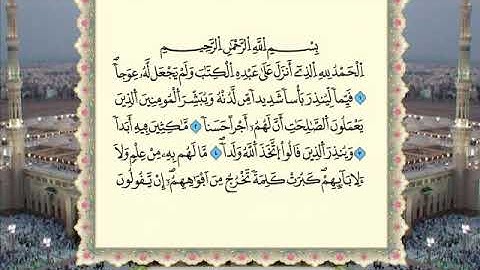 بِسْمِ اللَّهِ الرَّحْمَٰنِ الرَّحِيمِ
الْحَمْدُ لِلَّهِ الَّذِي أَنزَلَ عَلَىٰ عَبْدِهِ الْكِتَٰبَ وَلَمْ يَجْعَل لَّهُۥ عِوَجاًۖ
١ قَيِّماً لِّيُنذِرَ بَأْساً شَدِيداً مِّن لَّدُنْهُ وَيُبَشِّرَ الْمُومِنِينَ الَّذِينَ
يَعْمَلُونَ الصَّٰلِحَٰتِ أَنَّ لَهُمُۥٓ أَجْراً حَسَناً ٢ مَّٰكِثِينَ فِيهِ أَبَداً
٣ وَيُنذِرَ الَّذِينَ قَالُوا اتَّخَذَ اللَّهُ وَلَداً ٤ مَّا لَهُم بِهِۦ مِنْ عِلْمٍ وَلَا
لِأَبَآئِهِمْۖ كَبُرَتْ كَلِمَةً تَخْرُجُ مِنَ اَفْوَٰهِهِمُۥٓۖ إِنْ يَّقُولُونَ